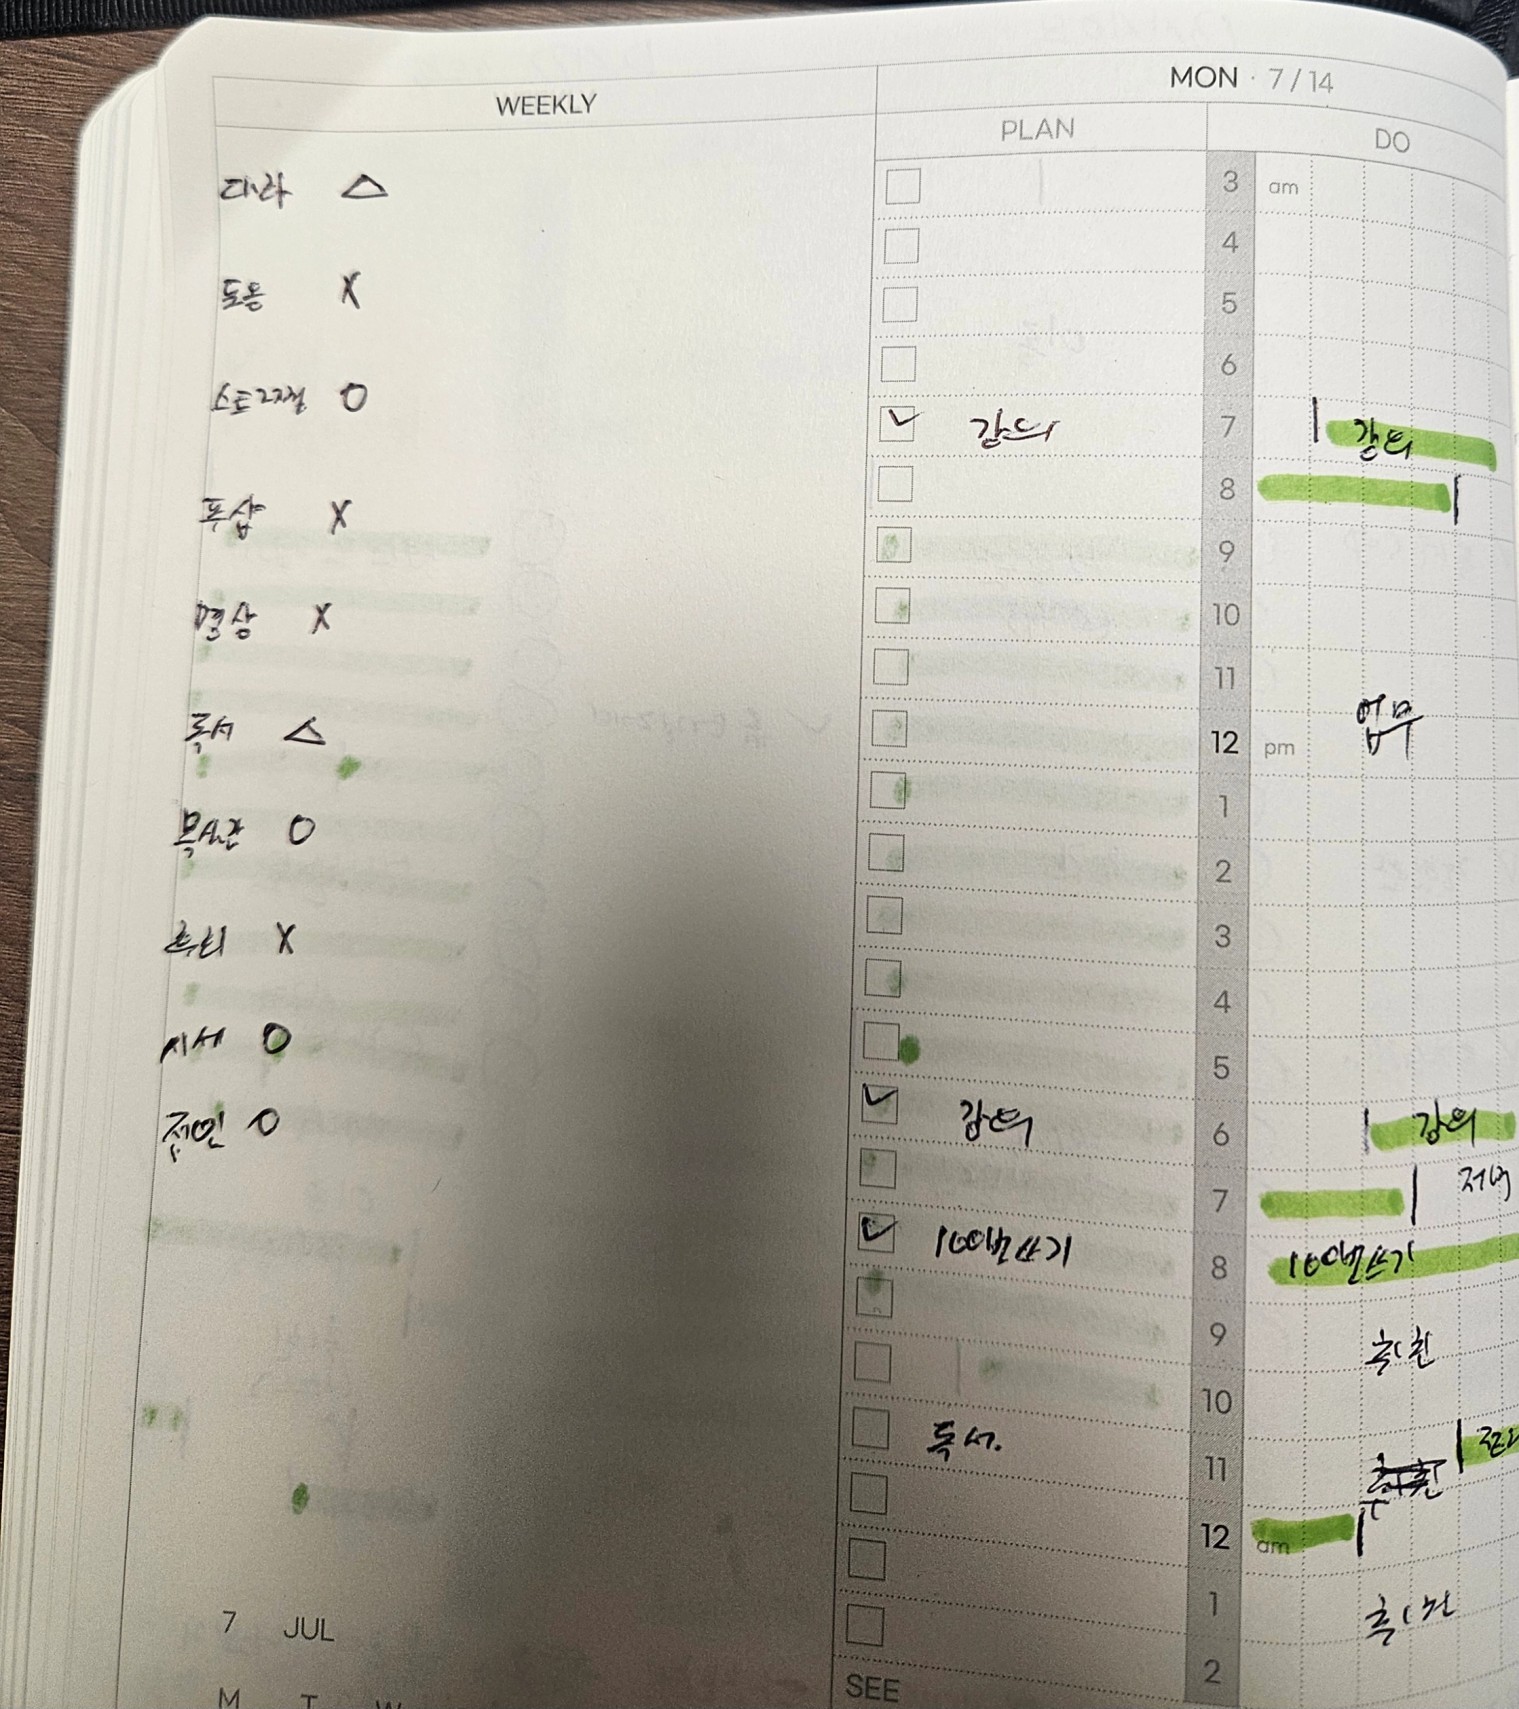 WEEKLY
MON · 7 / 14
PLAN
DO
다라 △
도움 X
스트레칭 O
푸샵 X
명상 X
독서 △
목시간 O
X
시세 O
O
7 JUL
M T W
3 am
4
5
6
강의 7 강의
8
9
10
11
12 pm 업무
1
2
3
4
5
강의 6 강의
7 저녁
100번쓰기 8 100번쓰기
9
10
독서. 11
12 am
1
2
SEE